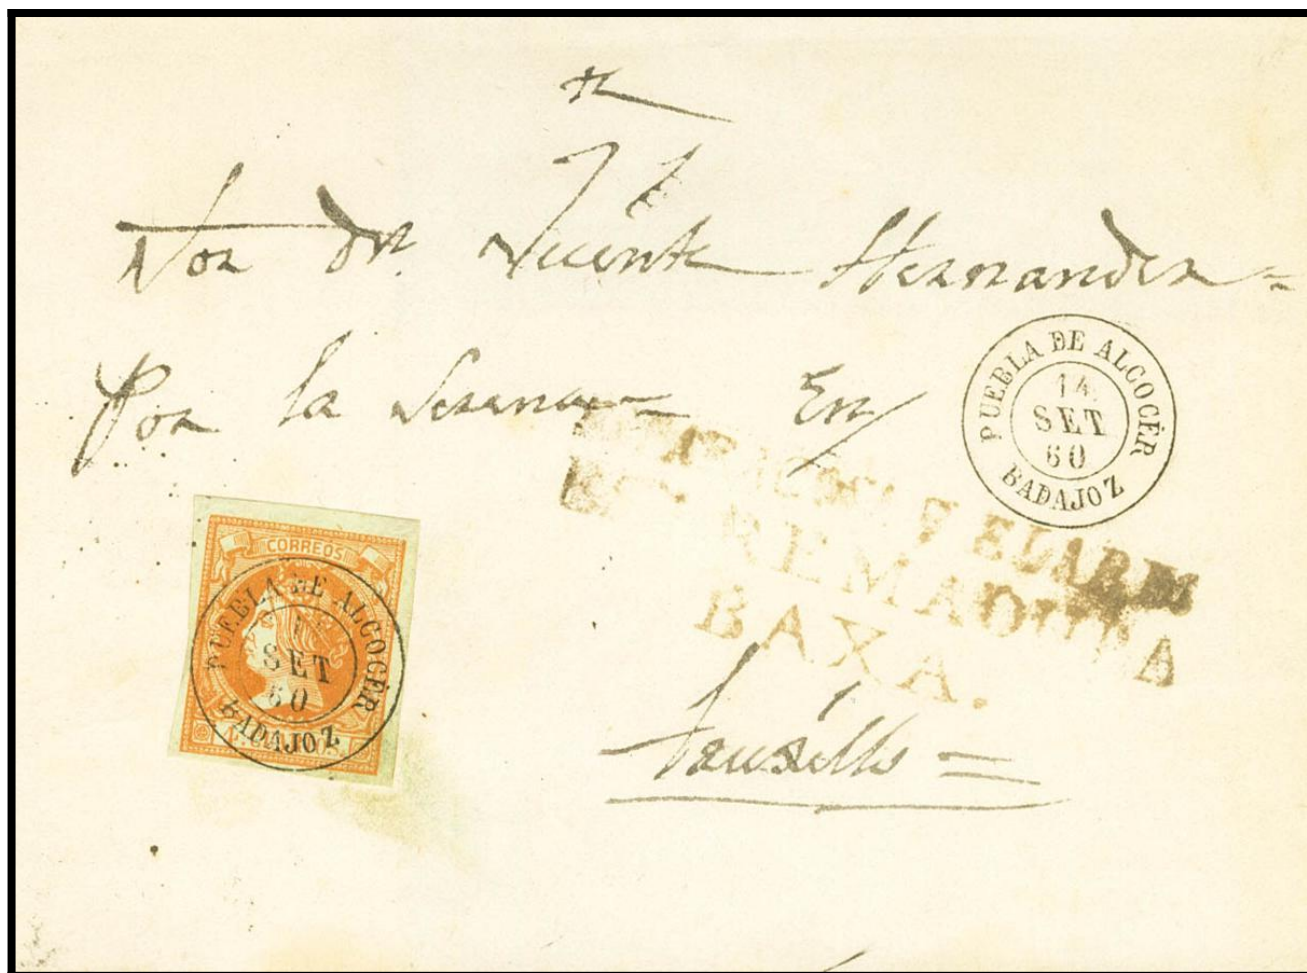 Sor Dn. Vicente Hernandez =
Por la Serena En
PUEBLA DE ALCOCÉR
14
SET
60
BADAJOZ
EXTREMADURA
BAXA.
CORREOS
PUEBLA DE ALCOCÉR
SET
60
BADAJOZ
Truxillo =